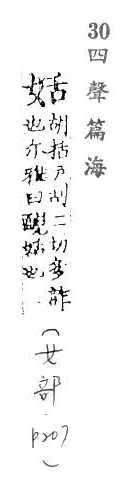 30 四聲篇海
姡 胡括戶刮二切多詐
也尒雅曰靦姡也
(女部 p207)